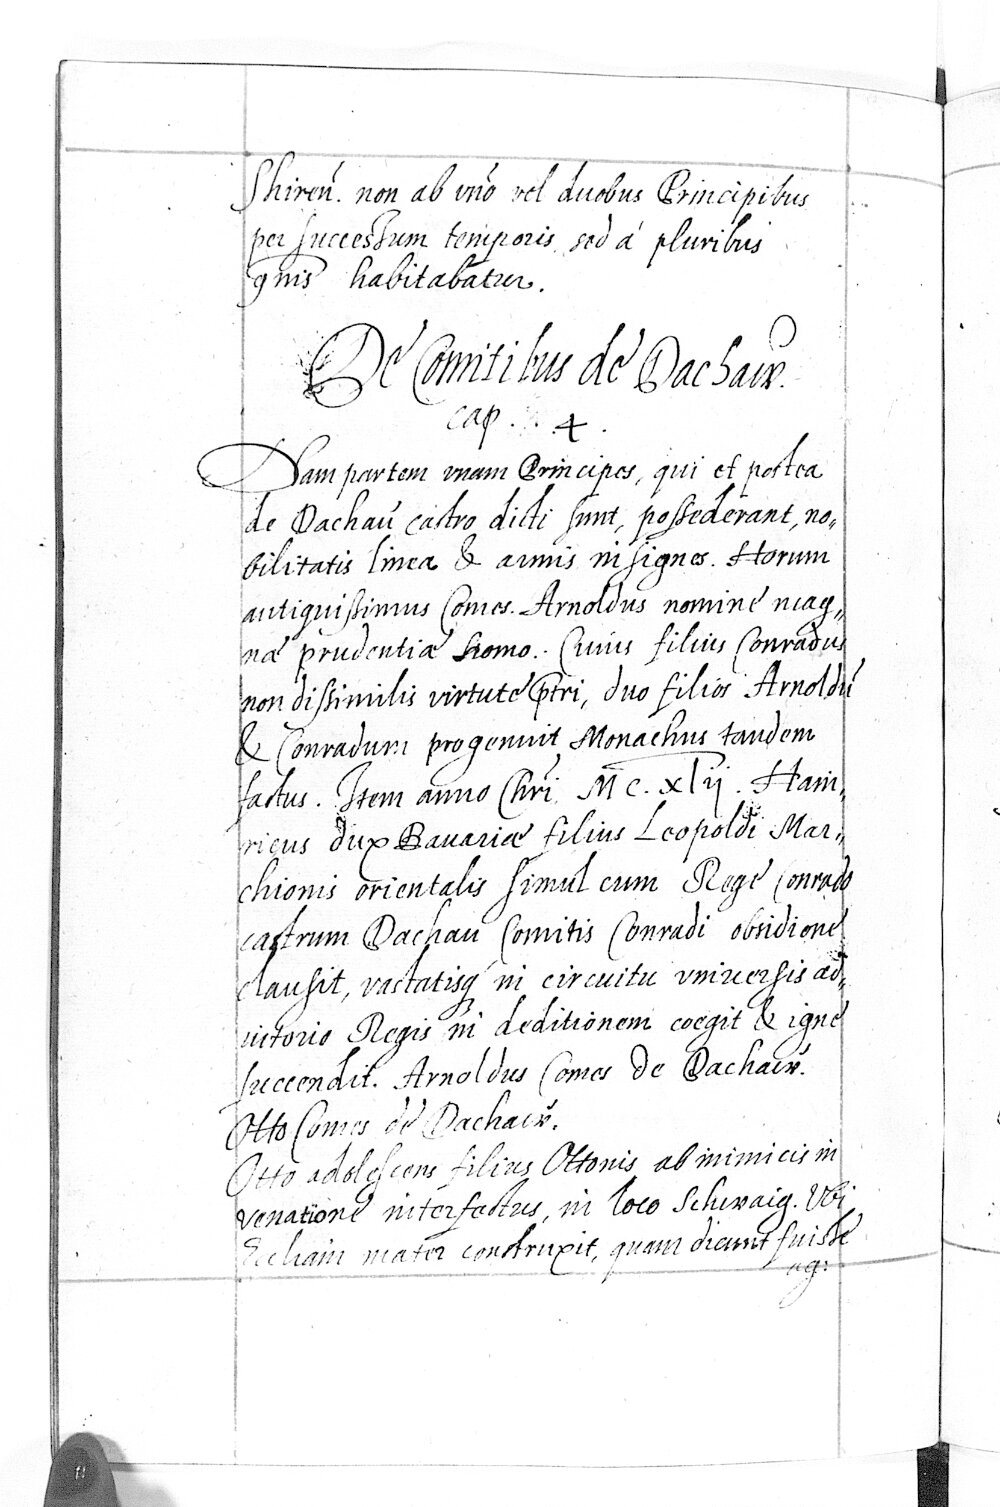 Shireñ. non ab vno vel duobus Principibus
per successum temporis sed á pluribus
gnis habitabatur.
De Comitibus de Dachaw.
cap. . 4 .
Nam partem vnam Principes, qui et postea
de Dachaú castro dicti sunt, possederant, no„
bilitatis linea & armis insignes. Horum
antiquissimus Comes. Arnoldus nomine mag„
næ prudentiæ homo. Cuius filius Conradus
non dissimilis virtute ptri, duo filios Arnoldú
& Conradum progenuit Monachus tandem
factus. Item anno Chri MC.xlij. Hain„
ricus dux Bavariæ filius Leopoldi Mar„
chionis orientalis simul cum Rege Conrado
castrum Dachau Comitis Conradi obsidione
clausit, vastatisq in circuitu vniuersis ad„
iutorio Regis in deditionem coegit & igne
succendit. Arnoldus Comes de Dachaw.
Otto Comes de Dachaw.
Otto adolescens filius Ottonis ab inimicis in
venatione interfectus, in loco Schwaig. Vbi
Ecliam mater construxit, quam dicunt fuisse
ag: